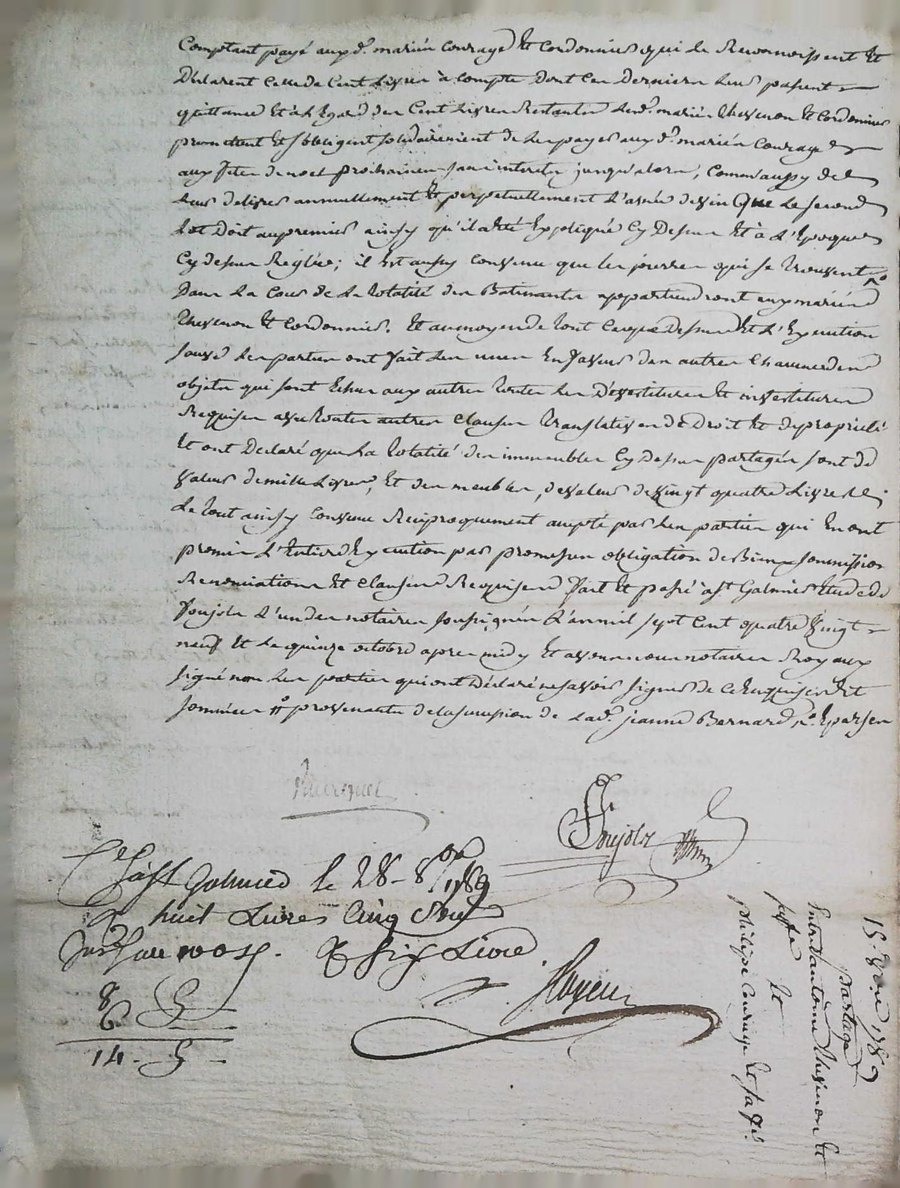 Comptant payé auxd. mariés Courage Et Cordonnier qui le Reconnoissent Et
Déclarent Celle de Cent Livres à Compte dont Ces Derniers Leurs passent
quittance Et à L'Egard des Cent Livres Restantes Lesd. mariés Thevenon Et Cordonnier
promettent Et s'obligent solidairement de Les payer auxd. mariés Courage
aux fetes de noel prochaines sans interets jusqu'alors, Comm'aussy de
Leur delivrer annuellement Et perpetuellement L'anée de vin Que Le second
Lot Doit au premier ainsy qu'il a été Expliqué Cy Dessus Et à L'Epoque
Cy dessus Reglée; il Est aussy Convenu que les pierres qui se trouvent
Dans La Cour de La totalité des Batiments appartiendront aux mariés
Thevenon Et Cordonnier. Et au moyen de tout Ce que Dessus Et L'Execution
sauve Les parties ont fait Les unes En faveur des autres Chacune des
objets qui sont Echus aux autres toutes Les Devestitures Et investitures
Requises avec toutes autres Clauses translatives de Droit Et de propriété
Et ont Déclaré que La totalité des immeubles Cy Dessus partagés sont de
valeur de mille Livres, Et des meubles, de valeur de vingt quatre Livres
Le tout ainsy Convenu Reciproquement accepté par Les parties qui En ont
promis L'Entiere Execution par promesses obligation de Biens soumissions
Renonciations Et Clauses Requises Fait Et passé à St Galmier Etude de
Poujols L'un des notaires soussignés L'an mil sept Cent quatre vingt
neuf Et Le quinze octobre après midy Et avons nous notaires Royaux
signé non Les parties qui ont Déclaré ne savoir signer de Ce Enquises Et
sommées # provenants de la succession de Lad. jeanne Bernard
Poujols
Cé à St Galmier le 28 8bre 1789
huit Livres Cinq sous
six Livre
8 5
6
14 - 5
15. 8bre 1789
partage
Entre antoine Thevenon Et
sa fe Et
philipe Courage Et sa fe.